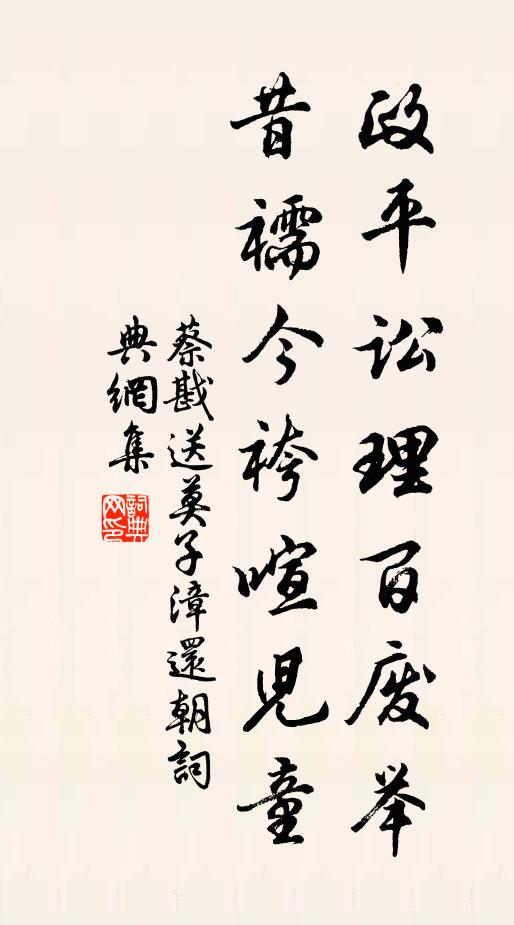 政平讼理百废举
昔襦今袴喧儿童
蔡戡送莫子漳還朝詞
典網集
詞典网印